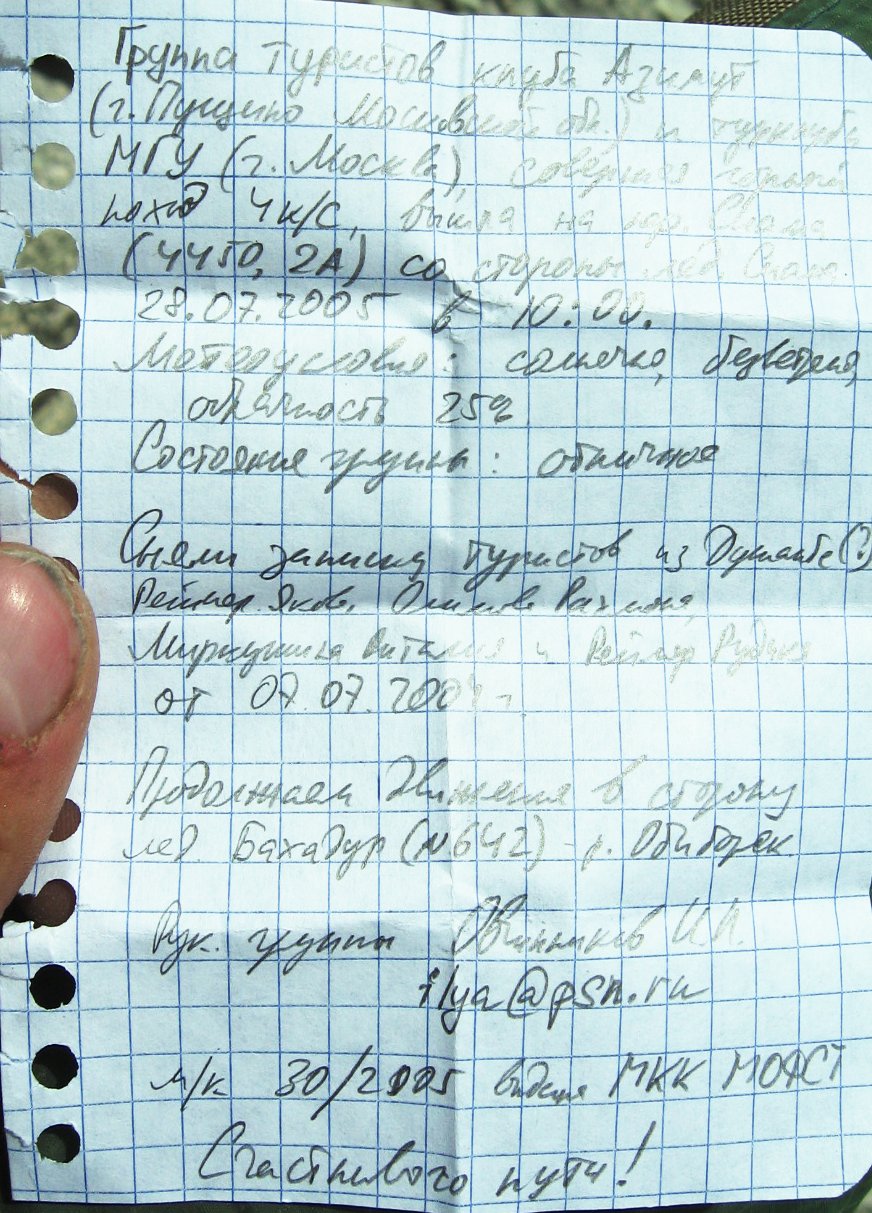 Группа туристов клуба Азимут
(г. Пущино Московской обл.) и турклуба
МГУ (г. Москва), совершая горный
поход 4 к/с, вышла на пер.
(4450, 2А) со стороны лед.
28.07.2005 в 10:00.
Метеоусловия: солнечно, безветрено,
облачность 25%
Состояние группы: отличное
Сняли записку туристов из Душанбе(?)
Реймер Яков,
Виталия и Реймер
от 07.07.2004 г.
Продолжаем движение в сторону
лед. Бахадур (N642) - р.
Рук. группы Овчинников И.
ilya@psn.ru
м/к 30/2005 выдана МКК МОФСТ
Счастливого пути!